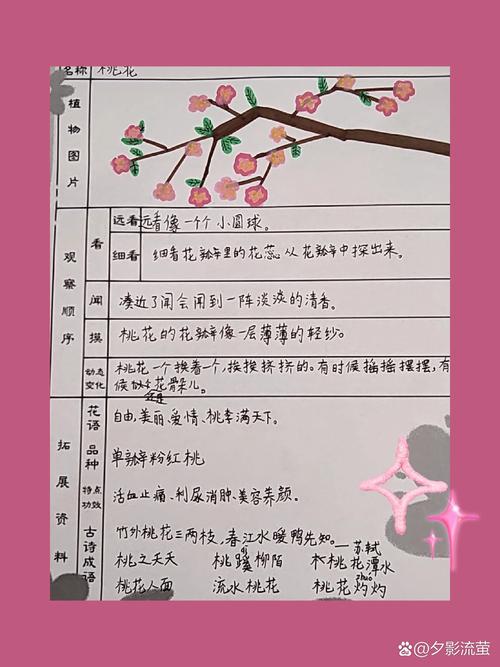 名称 桃花
植物图片
观察顺序
看
远看 远看像一个个小圆球。
细看 细看花瓣里的花蕊从花瓣中探出来。
闻 凑近了闻会闻到一阵淡淡的清香。
摸 桃花的花瓣像一层薄薄的轻纱。
动态变化 桃花一个挨着一个,挨挨挤挤的。有时候摇摇摆摆,有
候似 花骨朵儿。
还是
拓展资料
花语 自由、美丽、爱情、桃李满天下。
品种 单瓣粉红桃
特点功效 活血止痛、利尿消肿、美容养颜。
古诗成语
竹外桃花三两枝,春江水暖鸭先知。—苏轼
桃之夭夭 桃蹊柳陌 桃花潭水
qī
桃花人面 流水桃花 桃花灼灼
zhuó
百家号@夕影流萤